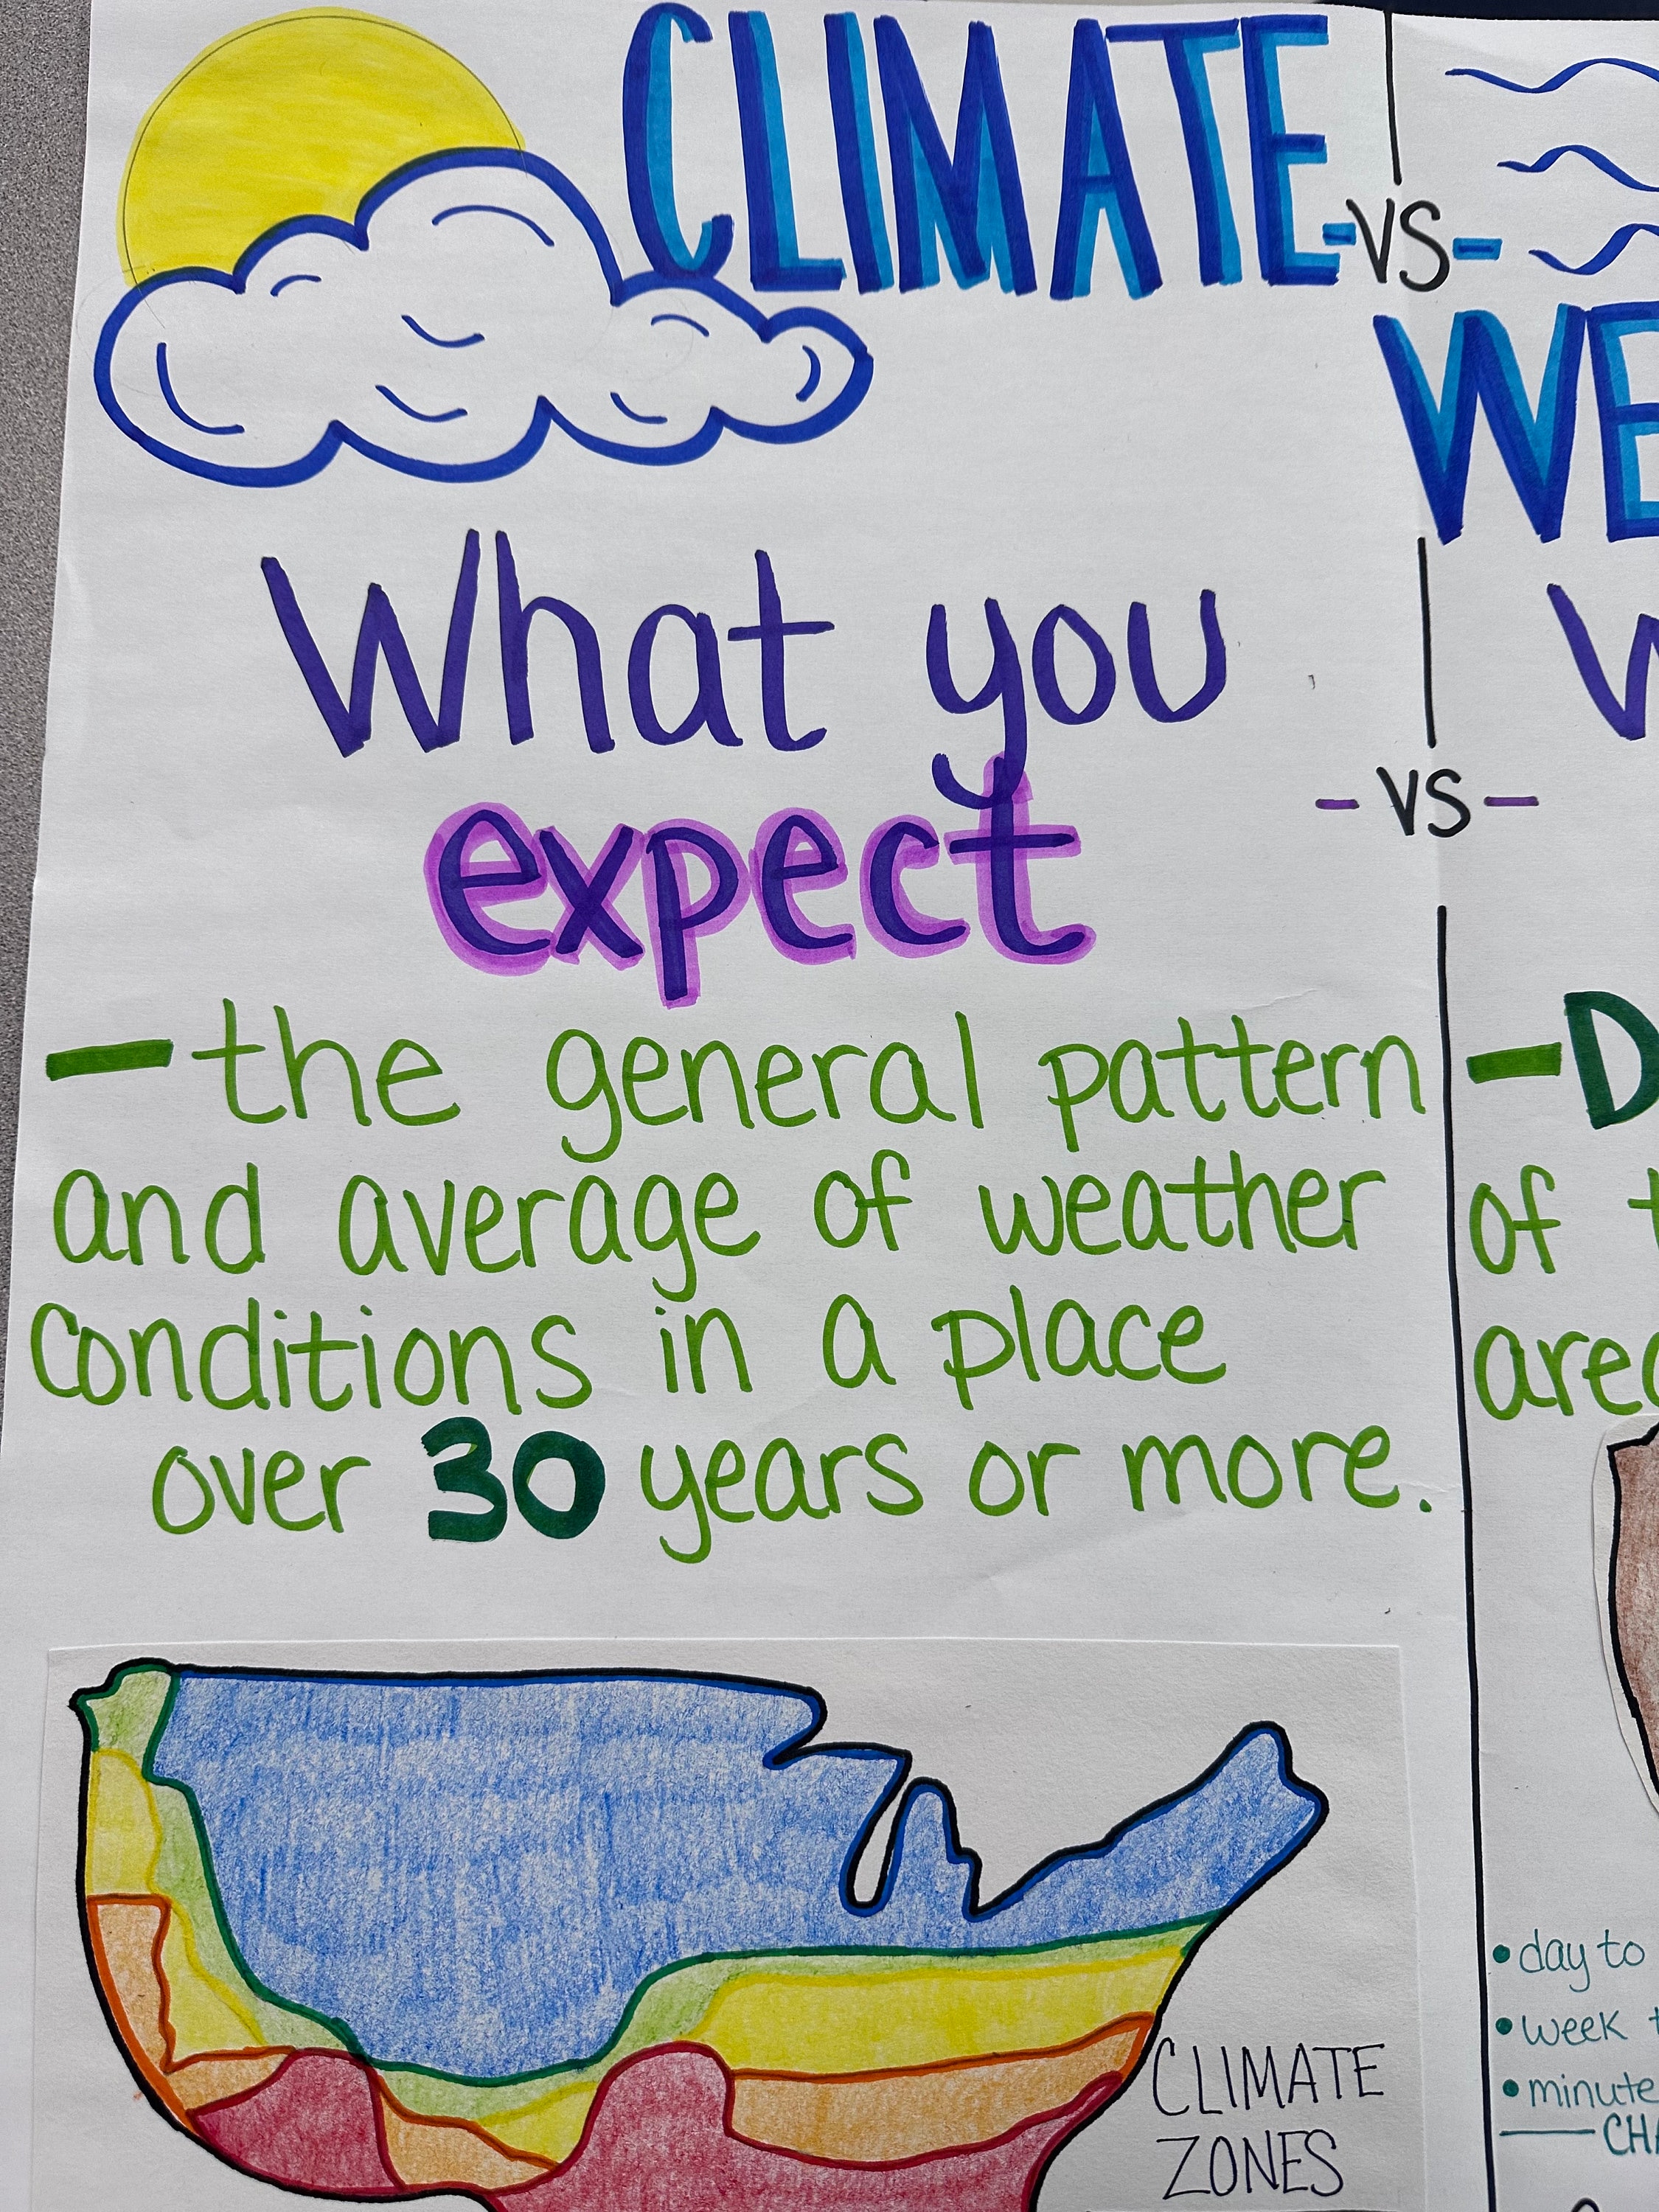 CLIMATE
-VS-
What you
expect
-VS-
-the general pattern
and average of weather
conditions in a place
over 30 years or more.
CLIMATE
ZONES
of
• day to
• week
• minute